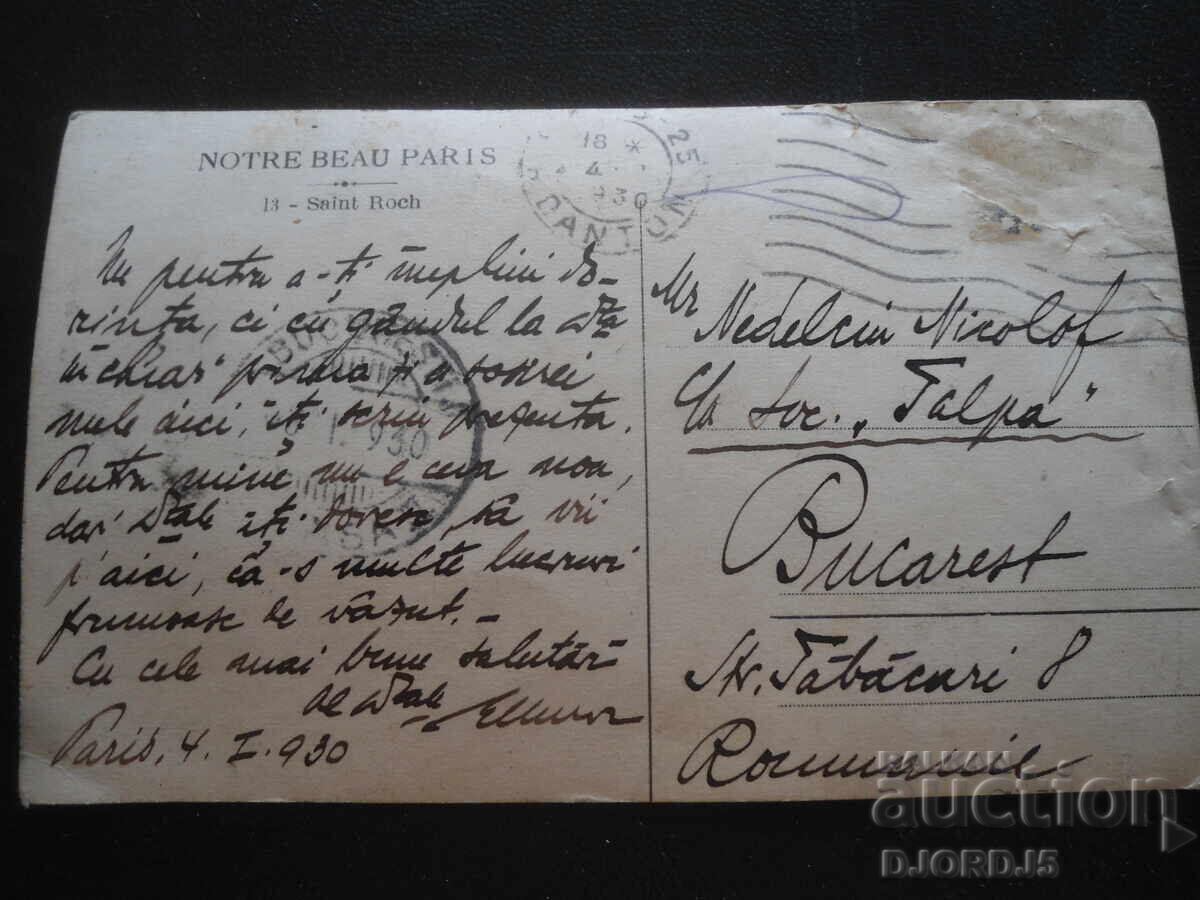 NOTRE BEAU PARIS
13 - Saint Roch
18 *
4
930
25
DANTON
Nu pentru a-ți împlini do-
rința, ci cu gândul la Dta
în chiar prima zi a sosirei
mele aici, iți scriu prezenta.
Pentru mine nu e ceva nou,
dar Dtale iți doresc, să vii
p'aici, că-s multe lucruri
frumoase de văzut.-
Cu cele mai bune salutări
al Dtale
Paris, 4. I. 930
BUCUREȘTI
1. 930
Mr Nedelciu Nicolof
Soc. „Talpa"
Bucarest
Str. Tăbăcari 8
Roumanie
BALKAN
auction
DJORDJ5